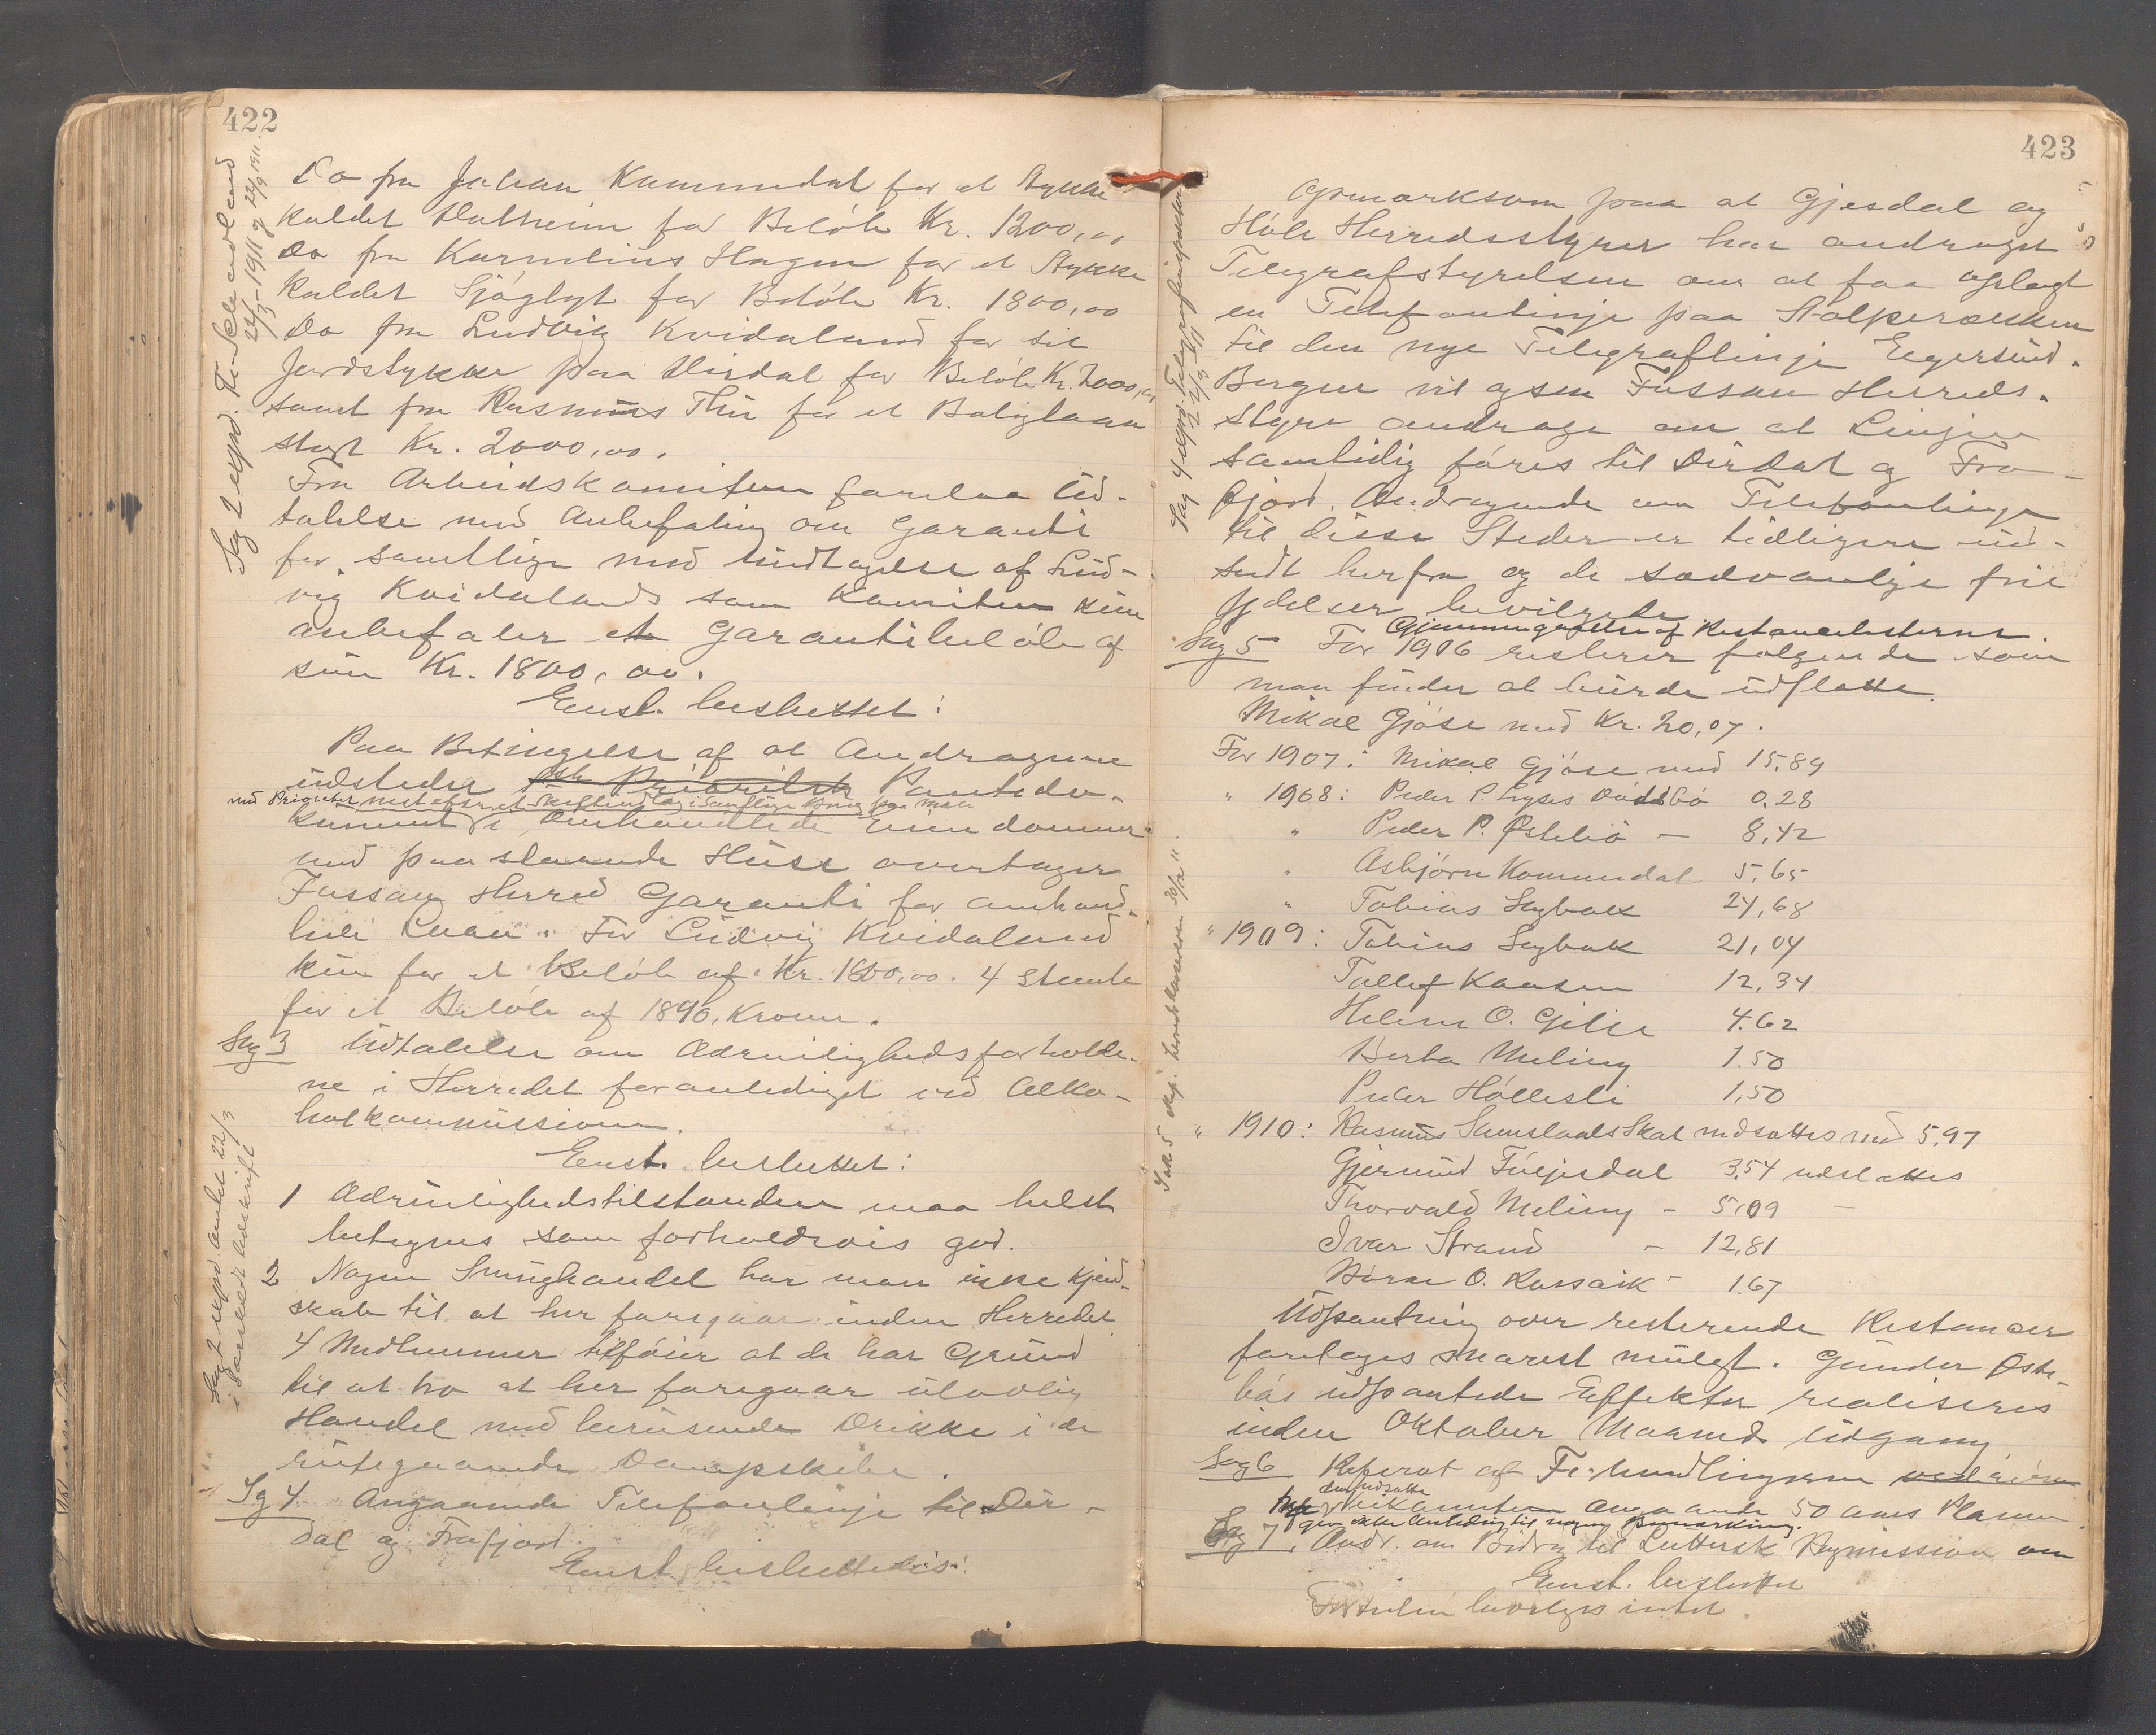 422
Do fra Johan Kommedal for et Stykke
kaldet Slotheim for Beløb Kr. 1200,00
Do fra Kornelius Hagen for et Stykke
kaldet Sjøglyt for Beløb Kr. 1800,00
Do fra Ludvig Kvidaland for sit
Jordstykke paa Dirdal for Beløb Kr. 2000,00
samt fra Rasmus Thu for et Boliglaan
stort Kr. 2000,00.
Fra Arbeidskomiteen forelaa Ud-
talelse med Anbefaling om Garanti
for samtlige med Undtagelse af Lud-
vig Kvidalands som Komiteen kun
anbefaler et Garantibeløb af
sum Kr. 1800,00.
Enst. besluttet:
Paa Betingelse af at Andragerne
udsteder 1ste Prioritets Pantedo-
med Prioritet næst efter
kument i omhandlede Eiendommer
med paastaaende Huse overtager
Fossan Herred Garanti for omhand-
lede Laan. For Ludvig Kvidaland
kun for et Beløb af Kr. 1800,00. 4 stemte
for et Beløb af 1890, Kroner.
Sag 3 Udtalelse om Ædruelighedsforholde-
ne i Herredet foranlediget ved Alko-
holkommissionen.
Enst. besluttet:
1 Ædruelighedstilstanden maa helst
betegnes som forholdsvis god.
2 Nogen Smughandel har man ikke Kjend-
skab til at her foregaar inden Herredet
4 Medlemmer tilføier at de har Grund
til at tro at her foregaar ulovlig
Handel med berusende Drikke i de
rutegaaende Dampskibe.
Sag 4 Angaaende Telefonlinje til Dir-
dal og Frafjord.
Enst. besluttedes:
Sag 2 expd. Til Selv andl med
22/3-1911 og 22/9 1911
Sag 3 expd amtet 22/3
i særskilt udskrift
423
Opmærksom paa at Gjesdal og
Høle Herredsstyrer har andraget
Telegrafstyrelsen om at faa oplagt
en Telefonlinje paa Stolperækken
til den nye Telegraflinje Egersund-
Bergen vil ogsaa Fossan Herreds-
styre andrage om at Linjen
samtidig føres til Dirdal og Fra-
fjord. Andragende om Telefonlinje
til disse Steder er tidligere ud-
sendt herfra og de sædvanlige frie
ydelser bevilgede.
Gjennemgaaelse af Restancelisterne.
Sag 5 For 1906 resterer følgende som
man finder at burde udslette.
Mikal Gjøse med Kr. 20,07.
For 1907: Mikal Gjøse med 15,89
" 1908: Peder P. Lyses Dødsbo 0,28
" Peder P. Østebø — 8,42
" Asbjørn Kommedal 5,65
" Tobias Segbak 24,68
" 1909: Tobias Segbak 21,04
Tollef Kansen 12,34
Helene O. Gilje 4.62
Berta Meling 1.50
Peder Høllesli 1,50
" 1910: Rasmus Samslaals Skat nedsattes med 5,97
Gjermund Føijesdal 3,54 udslettes
Thorvald Meling - 5,09 —
Ivar Strand - 12,81
Børre O. Rossavik - 1.67
Udpantning over resterende Restancer
foretages snarest muligt. Gunder Øste-
bøs udpantede Effekter realiseres
inden Oktober Maaneds Udgang.
Sag 6 Referat af Forhandlingerne
den nedsatte
komiteen angaaende 50 aars Planen
gav ikke Anledning til nogen Bemærkning.
Sag 7. Andr. om Bidrag til Luthersk Bymission om
Enst. besluttet
Fortiden bevilges intet.
Sag 4 expd. Telegrafinspektøren
22/3 1911
Sak 5 exp. herredskassereren 30/12 11.